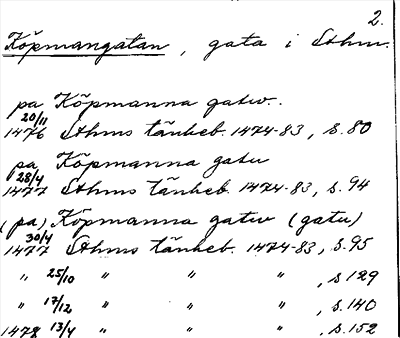 2.
Köpmangatan, gata i Sthm.
pa Köpmanna gatw.
20/11
1476 Sthms tänkeb. 1474-83, s. 80
pa Köpmanna gatu
28/4
1477 Sthms tänkeb. 1474-83, s. 94
(pa) Köpmanna gatw (gatu)
30/4
1477 Sthms tänkeb. 1474-83, s. 95
" 25/10 " " " , s 129
" 17/12 " " " , s. 140
1478 13/4 " " " , s. 152